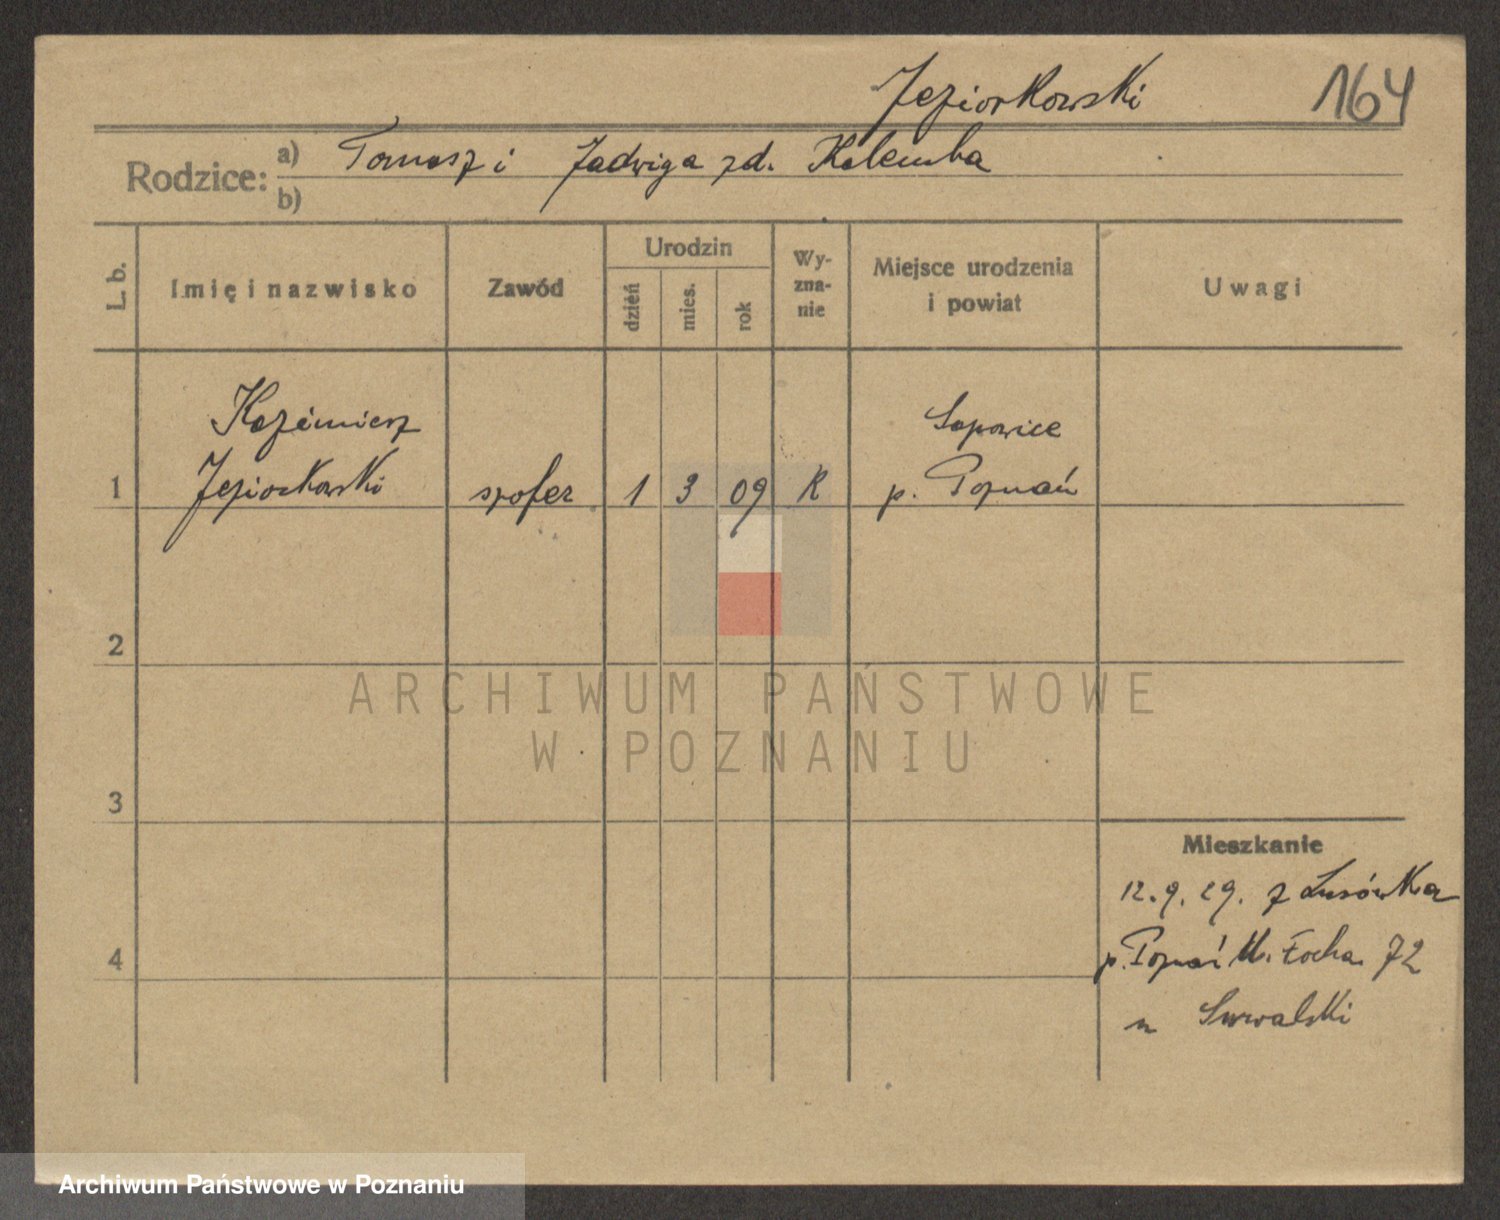 Jeziorkowski
164
Rodzice: a) Tomasz i Jadwiga zd. Kolemba
b)
L. b.
Imię i nazwisko
Zawód
Urodzin
dzień
mies.
rok
Wy-
zna-
nie
Miejsce urodzenia
i powiat
Uwagi
Kazimierz
Sapowice
1 Jeziorkowski szofer 1 3 09 R p. Poznań
2
3
4
ARCHIWUM PAŃSTWOWE
W POZNANIU
Mieszkanie
12.9.29. z Lusówka
p. Poznań Focha 72
Surwalski
Archiwum Państwowe w Poznaniu